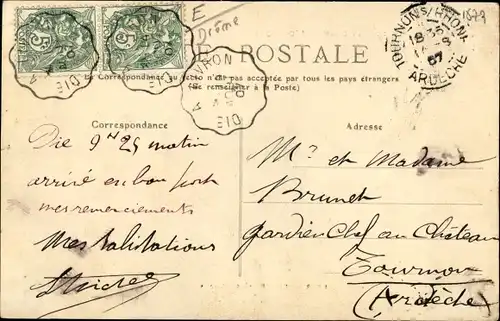 E
Drôme
1879
E POSTALE
La Correspondance au recto n'est pas acceptée par tous les pays étrangers
(Se renseigner à la Poste)
DIE A
DIE A
DIE A VRON
TOURNON S/RHONE
ARDECHE
18 35
07
5
5
Correspondance
Adresse
Die 9h 25 matin
arrivé en bon port
mes remerciements
Mes salutations
Mr et Madame
Brunet
gardien Chef au Château
Tournon
(Ardèche)